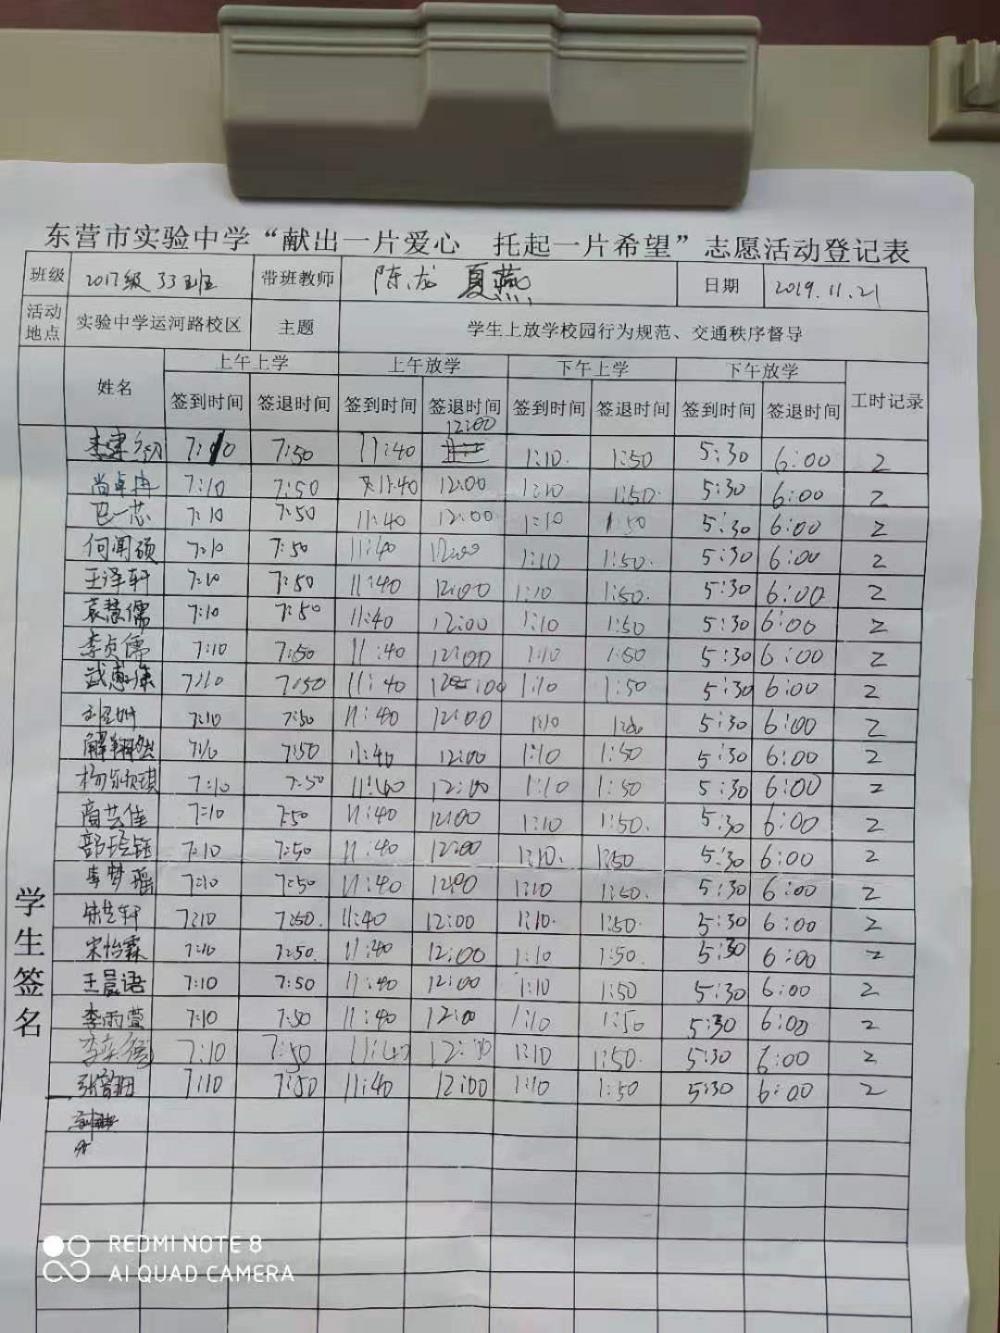 东营市实验中学“献出一片爱心 托起一片希望”志愿活动登记表
班级 2017级33班 带班教师 陈龙 夏燕 日期 2019.11.21
活动地点 实验中学运河路校区 主题 学生上放学校园行为规范、交通秩序督导
姓名 上午上学 上午放学 下午上学 下午放学 工时记录
签到时间 签退时间 签到时间 签退时间 签到时间 签退时间 签到时间 签退时间
学生签名
7:10 7:50 11:40 12:00 1:10. 1:50 5:30 6:00 2
尚卓冉 7:10 7:50 11:40 12:00 1:10 1:50. 5:30 6:00 2
巴一芯 7:10 7:50 11:40 12:00 1:10 1:50 5:30 6:00 2
何闻硕 7:10 7:50 11:40 12:00 1:10 1:50. 5:30 6:00 2
王泽轩 7:10 7:50 11:40 12:00 1:10 1:50. 5:30 6:00 2
袁慧儒 7:10 7:50 11:40 12:00 1:10 1:50 5:30 6:00 2
李贞儒 7:10 7:50 11:40 12:00 1:10 1:50 5:30 6:00 2
7:10 7:50 11:40 12:00 1:10 1:50 5:30 6:00 2
7:10 7:50 11:40 12:00 1:10 5:30 6:00 2
解翔然 7:10 7:50 11:40 12:00 1:10 1:50 5:30 6:00 2
7:10 7:50 11:40 12:00 1:10 1:50 5:30 6:00 2
商芸佳 7:10 7:50 11:40 12:00 1:10 1:50. 5:30 6:00 2
7:10 7:50 11:40 12:00 1:10. 1:50 5:30 6:00 2
李梦瑶 7:10 7:50 11:40 12:00 1:10 1:50. 5:30 6:00 2
7:10 7:50. 11:40 12:00 1:10. 1:50. 5:30 6:00 2
宋怡霖 7:10 7:50. 11:40 12:00 1:10 1:50. 5:30 6:00 2
王晨语 7:10 7:50 11:40 12:00 1:10 1:50 5:30 6:00 2
李雨萱 7:10 7:50 11:40 12:00 1:10 1:50 5:30 6:00 2
7:10 7:50 11:40 12:00 1:10 1:50. 5:30 6:00 2
7:10 7:50 11:40 12:00 1:10 1:50 5:30 6:00 2
REDMI NOTE 8
AI QUAD CAMERA